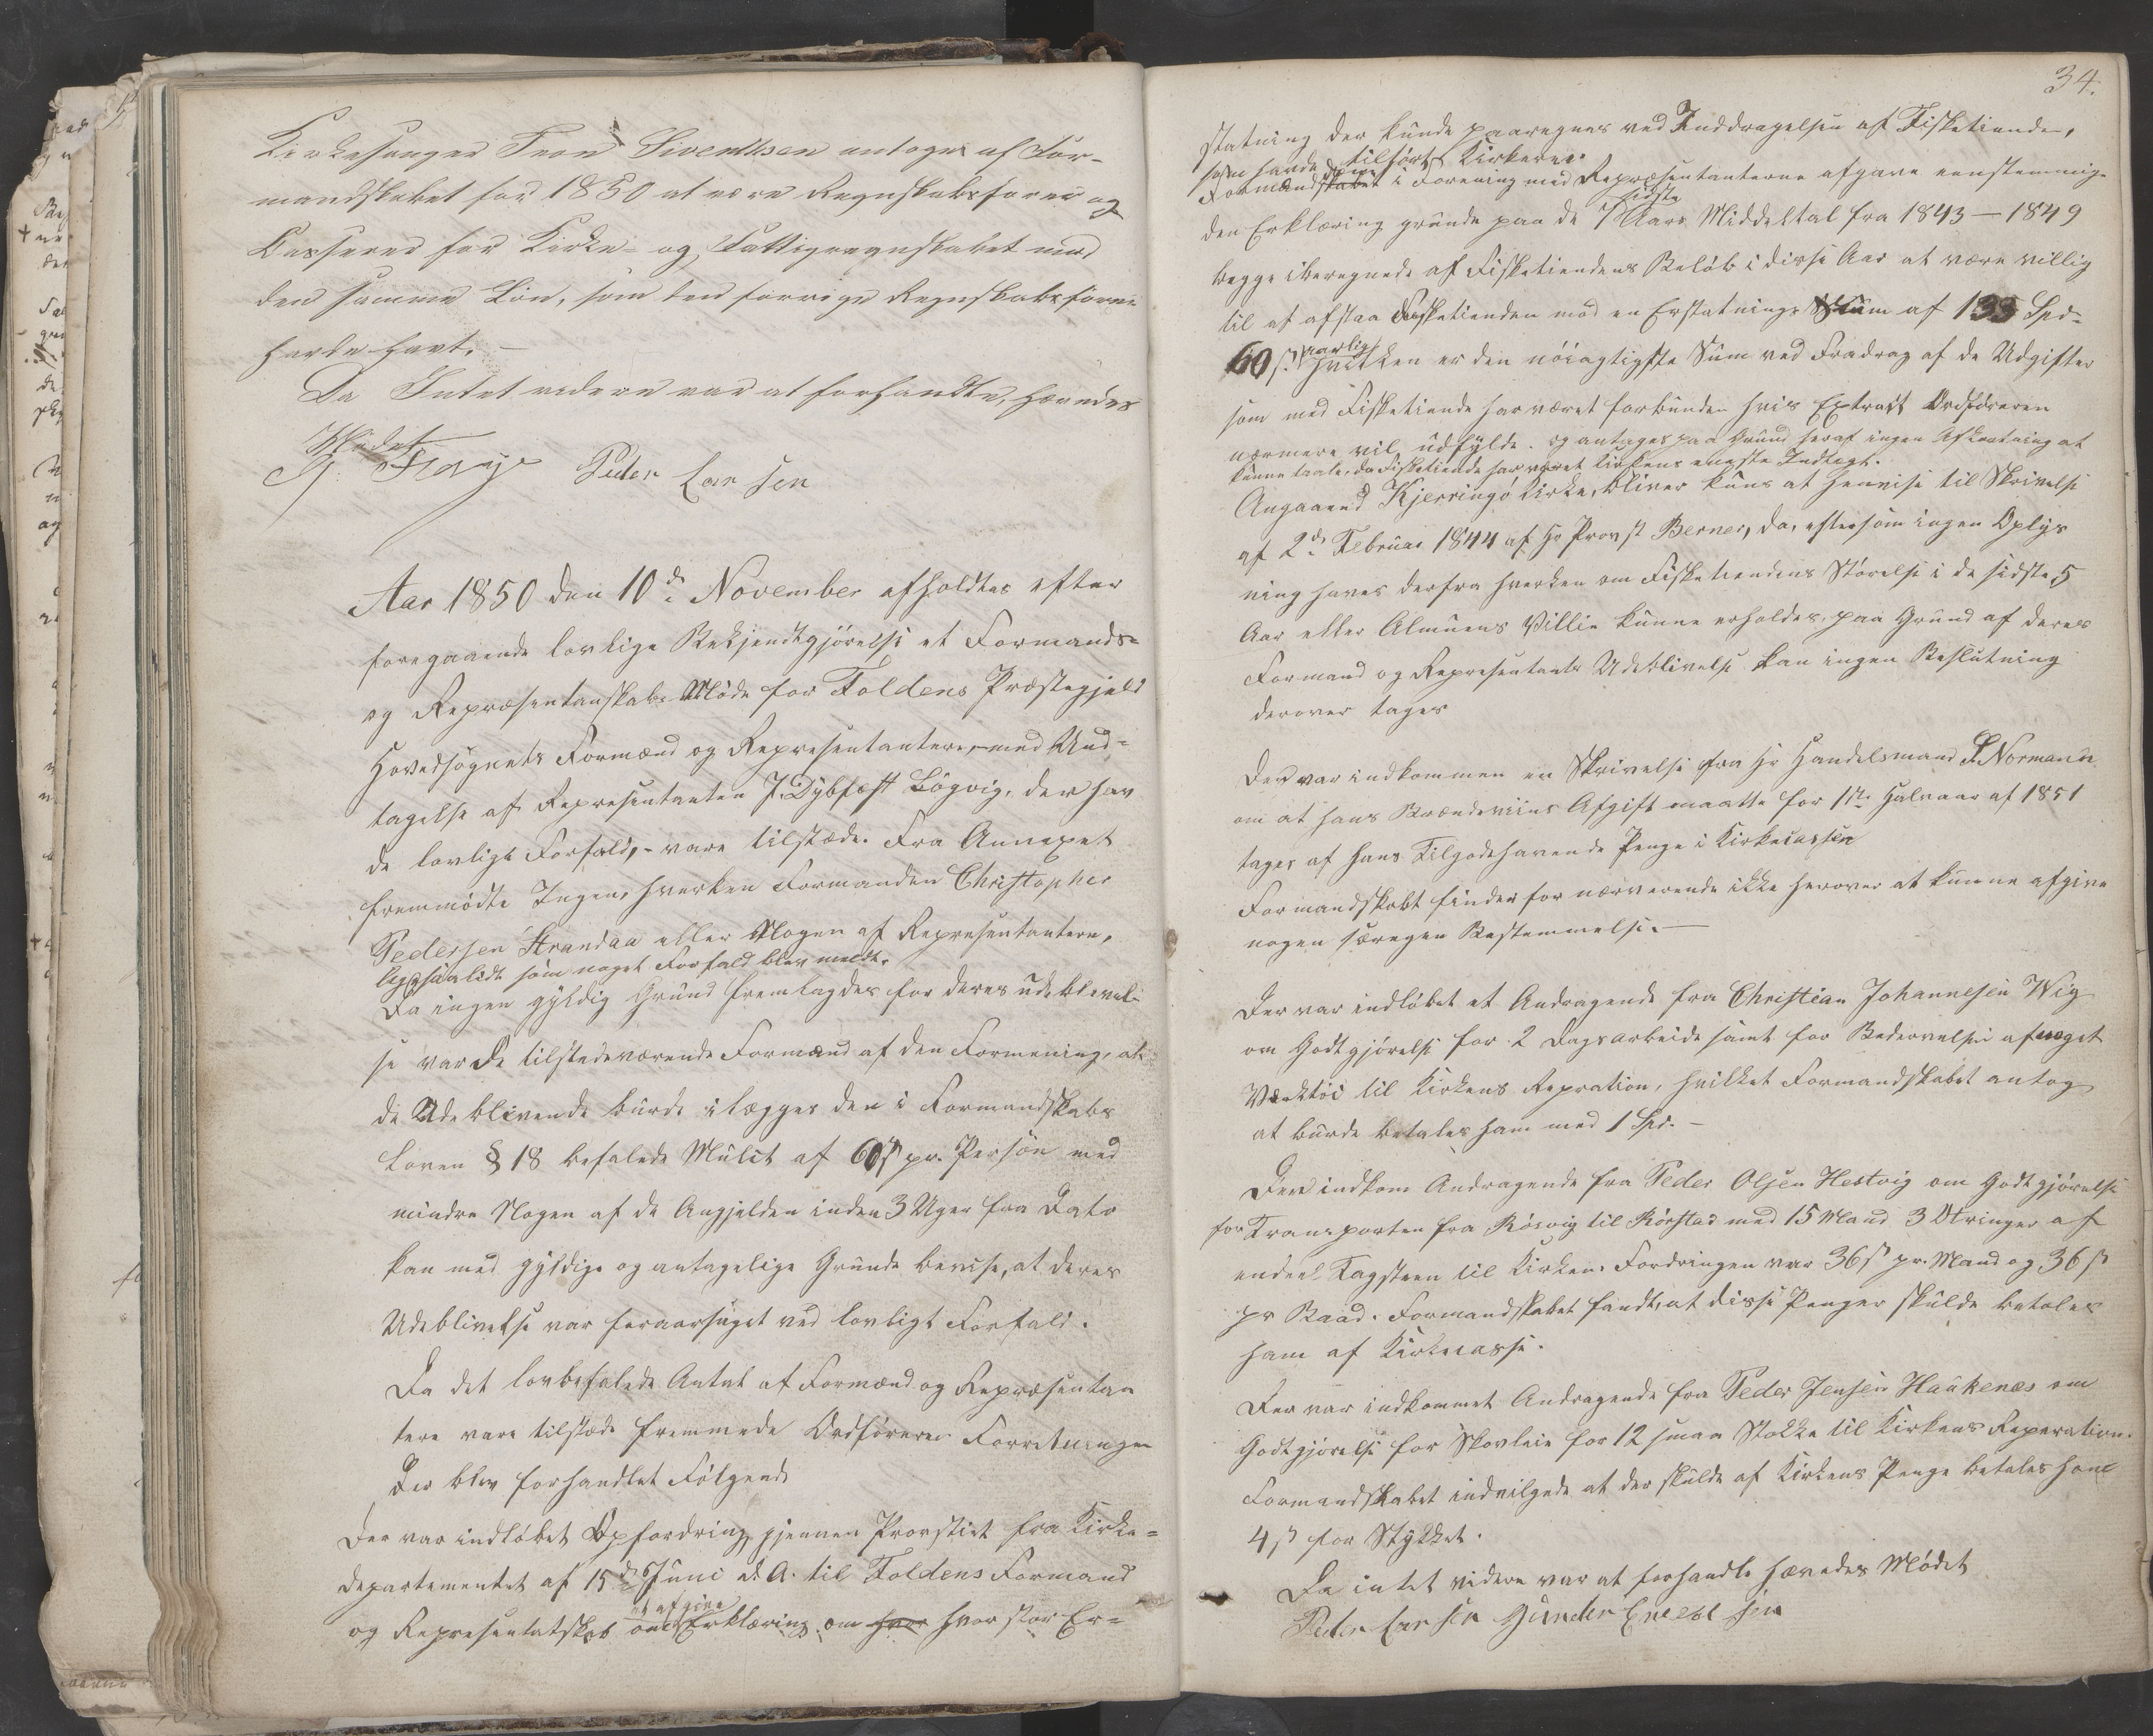 Kirkesanger Tron Sivertssen antoges af For-
mandskabet for 1850 at være Regnskabsfører og
Casserer for Kirke- og Fattigregnskabet mod
den samme Løn, som den forrige Regnskabsfører
havde havt. –
Da Intet videre var at forhandle, hævedes
Mødet
Peder Larsen
Aar 1850 den 10d November afholdtes efter
foregaaende lovlige Bekjendtgjørelse et Formands-
og Repræsentanskabs Møde for Foldens Præstegjeld
Hovedsognets Formænd og Representantere, med Und-
tagelse af Representanten J. Dybfest Løgvig, der hav
de lovligt Forfald, - vare tilstæde. Fra Annexet
fremmødte Ingen, hverken Formanden Christopher
Pedersen Strandaa eller Nogen af Representantere,
ligesaalidt som noget Forfald blev meldt.
Da ingen gyldig Grund fremlagdes for deres udeblivel-
se var de tilstedeværende Formænd af den Formening, at
de Udeblivende burde ilægges den i Formandskabs
Loven § 18 befalede Mulct af 60 s pr. Person med
mindre Nogen af de Angjeldende inden 3 Uger fra Dato
kan med gyldige og antagelige Grunde bevise, at deres
Udeblivelse var foraarsaget ved lovligt Forfald.
Da det lovbefalede Antal af Formænd og Repræsentan
tere vare tilstæde fremmede Ordføreren Forretningen
Der blev forhandlet Følgende
Der var indløbet Opfordring gjennem Provstiet fra Kirke-
departementet af 15d Juni d. A. til Foldens Formand
og Representatskab at afgive Erklæring om hvor hvor stor Er-
34.
statning der kunde paaregnes ved Inddragelsen af Fisketienden,
som havde været tilført Kirkerne.
Formandskabet i Forening med Repræsentanterne afgave eenstemmig
den Erklæring grunde paa de 7 sidste Aars Middeltal fra 1843 – 1849
begge iberegnede af Fisketiendens Beløb i disse Aar at være villig
til at afstaa Fisketienden mod en Erstatnings Sum af 133 Spd-
60 s. aarlig hvilken er den nöiagtigste Sum ved Fradrag af de Udgifter
som med Fisketiende har været forbunden hvis Extract Ordføreren
nærmere vil udfylde. og antages paa Grund heraf ingen Afkortning at
kunne taale, da Fisketiende har været Kirkens eneste Indtægt.
Angaaend Kjerringø Kirke, bliver kuns at henvise til Skrivelse
af 2d Februar 1844 af Hr Provst Berner, da, eftersom ingen Oplys
ning haves derfra hverken om Fisketiendens Størrelse i de sidste 5
Aar eller Almuens Villie kunne erholdes, paa Grund af deres
Formand og Representants Udeblivelse kan ingen Beslutning
derover tages
Der var indkommen en Skrivelse fra Hr Handelsmand Normann
om at hans Brændeviins Afgift maatte for 1ste Halvaar af 1851
tages af hans Tilgodehavende Penge i Kirkecassen
Formandskabt finder for nærverende ikke herover at kunne afgive
nogen særegen Bestemmelse. –
Der var indløbet et Andragende fra Christian Johannesen Wig
om Godtgjørelse for 2 Dagsarbeide samt for Bedervelse af noget
Værktøi til Kirkens Repration, hvilket Formandskabet antog
at burde betales ham med 1 Spd. –
Der indkom Andragende fra Peder Olsen Hestvig om Godtgjørelse
for Transporten fra Røsvig til Rørstad med 15 Mand 3 Otringer af
endeel Tagsteen til Kirken. Fordringen var 36 s pr. Mand og 36 s
pr Baad. Formandskabet fandt, at disse Penger skulde betales
ham af Kirkecasse.
Der var indkommet Andragende fra Peder Jensen Haukenæs om
Godtgjørelse for Skovleie for 12 smaa Stokke til Kirkens Reperation.
Formandskabet indvilgede at der skulde af Kirkens Penge betales ham
4 s for Stykket.
Da intet videre var at forhandle hævedes Mødet
Peder Larsen Gunder